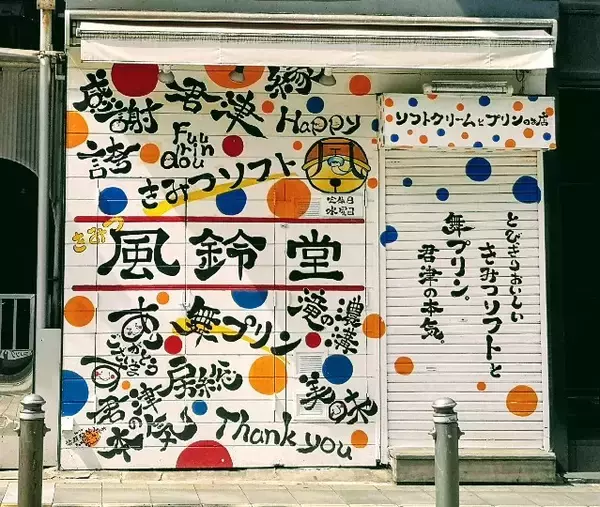 感謝
君津
縁
Happy
誇
Fuu
rin
dou
きみつソフト
定休日
水曜日
ソフトクリームとプリンのお店
きみつ
風鈴堂
とびきりおいしい
きみつソフトと
舞プリン。
君津の本気。
ありがとう
ございます
舞プリン
濃溝
滝の
房総
君津
の
本気
Thank you